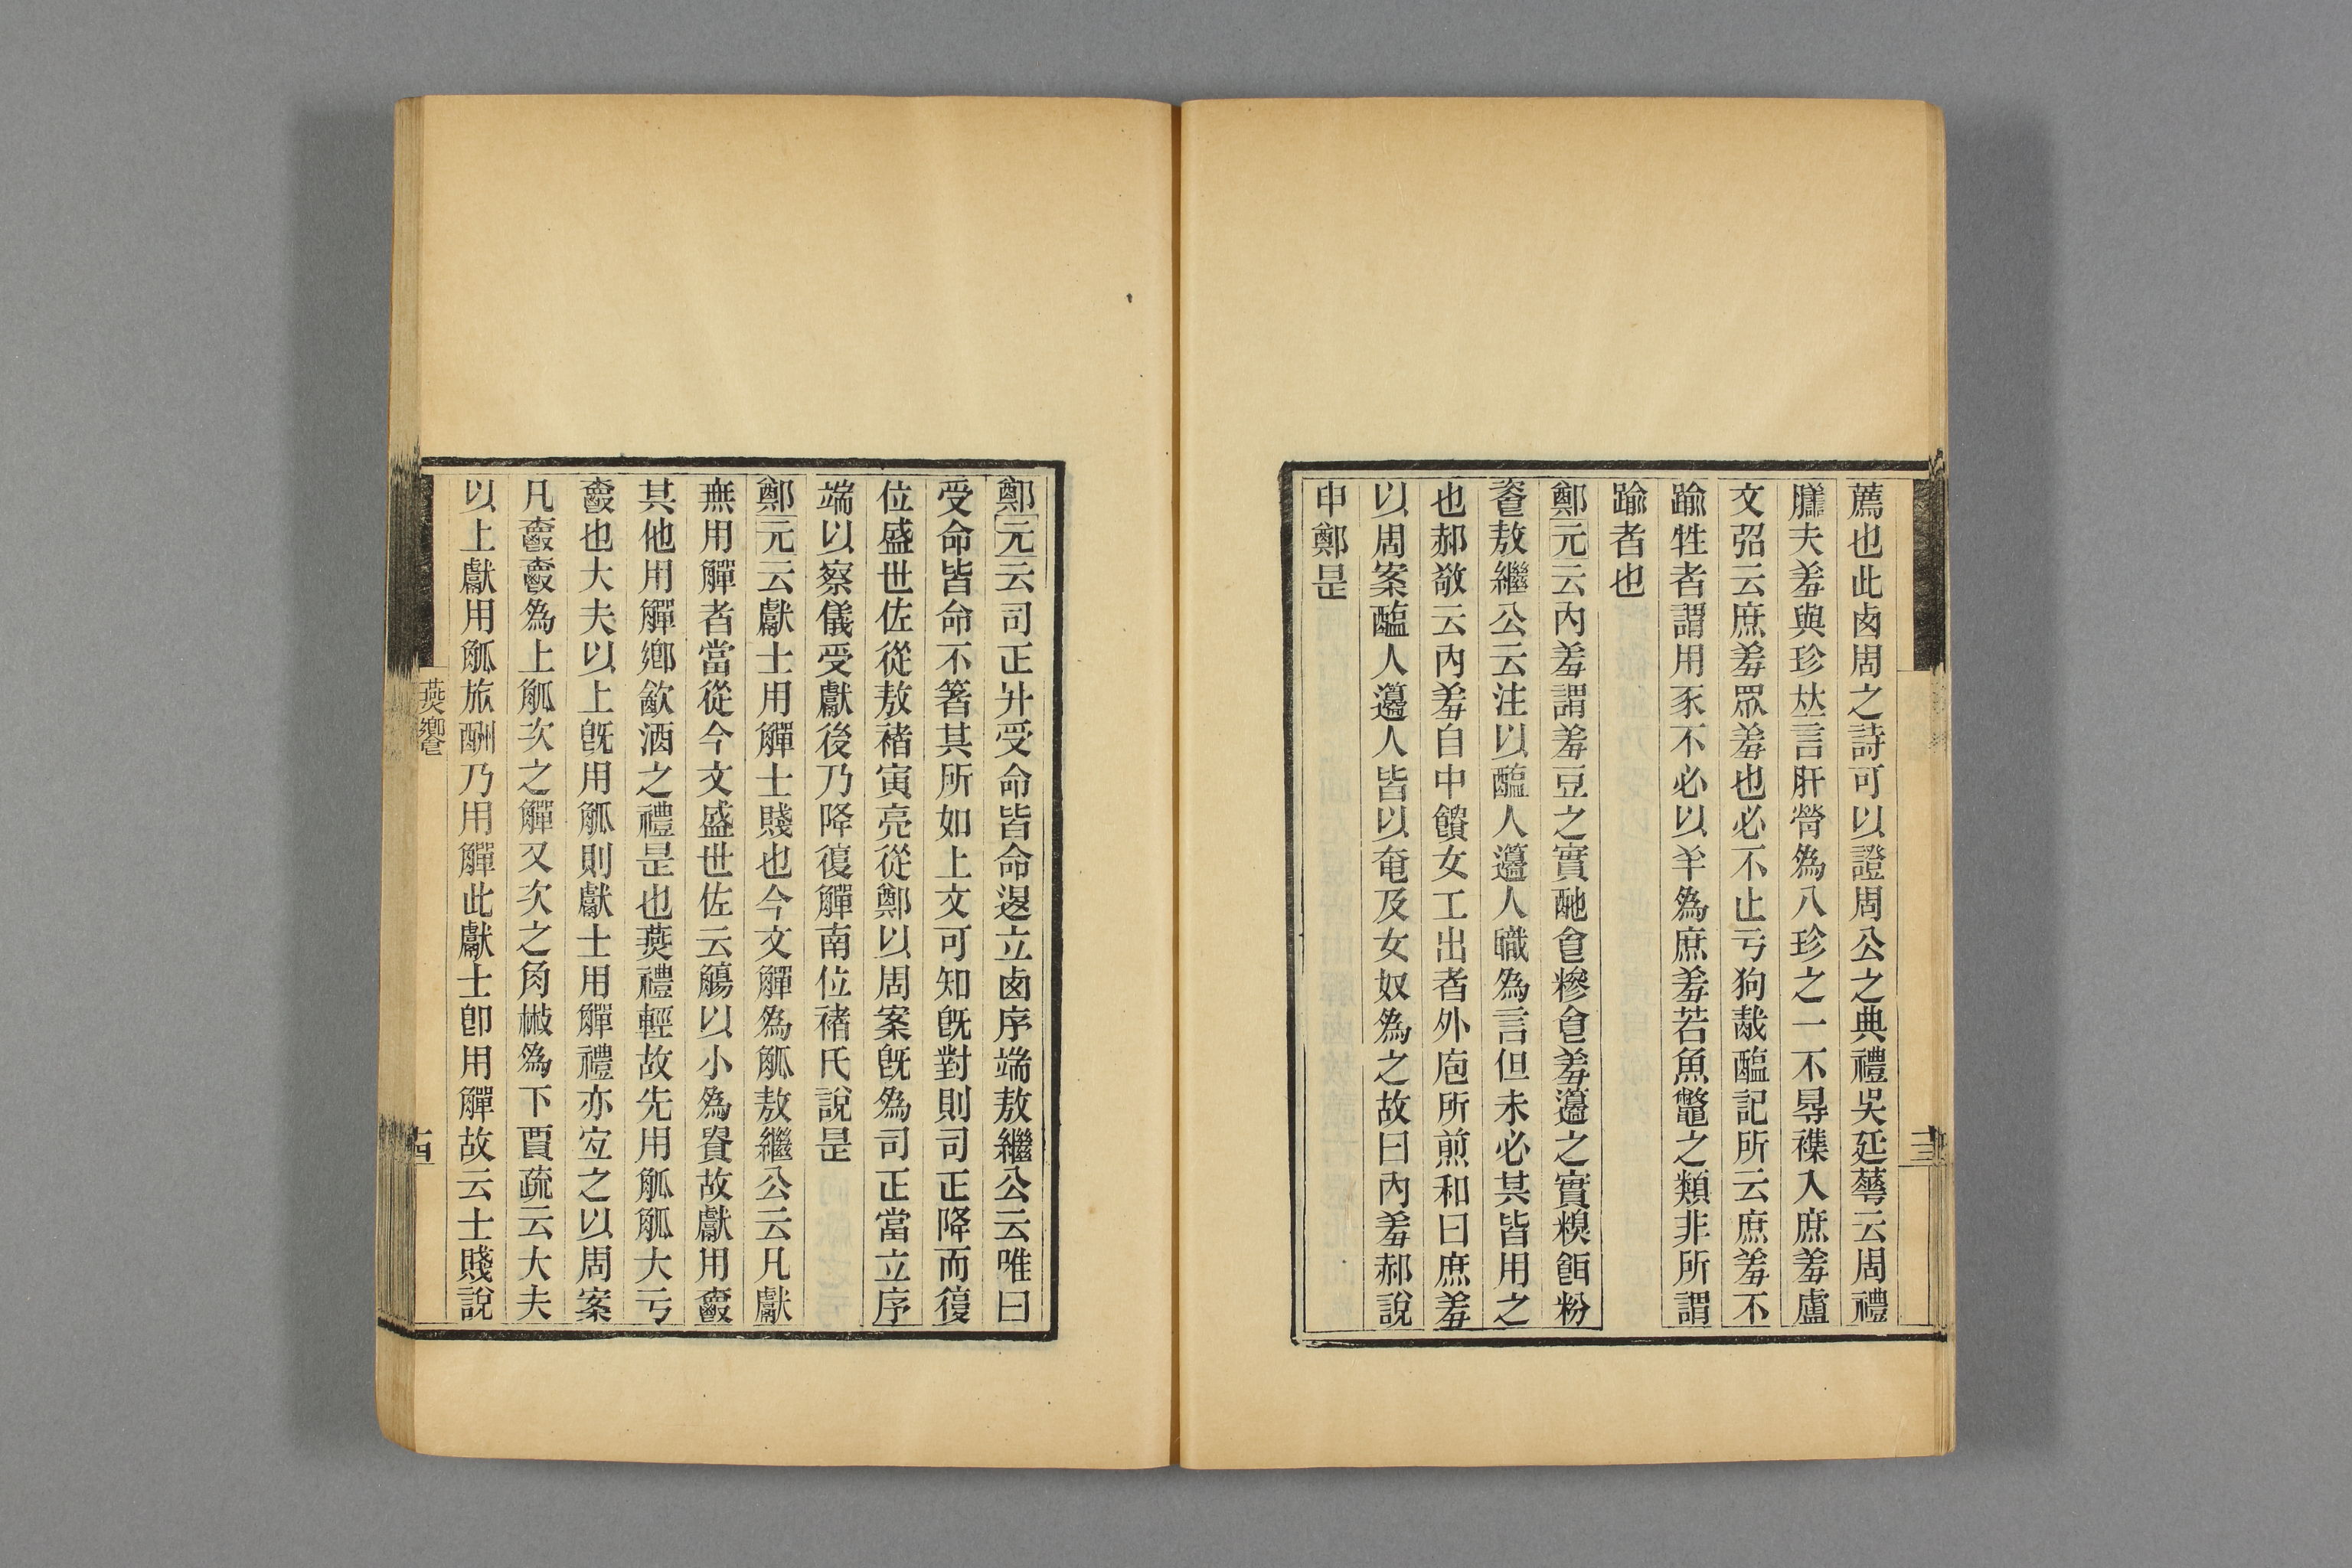 薦也此卤周之詩可以證周公之典禮吳廷蕚云周禮
膳夫羞與珍竝言肝膋為八珍之一不㝵襍入庶羞盧
文弨云庶羞眾羞也必不止亏狗胾醢記所云庶羞不
踰牲者謂用豕不必以羊為庶羞若魚鼈之類非所謂
踰者也
鄭元云內羞謂羞豆之實酏𠊊糝𠊊羞籩之實糗餌粉
餈敖繼公云注以醢人籩人職為言但未必其皆用之
也郝敬云內羞自中饋女工出者外庖所煎和曰庶羞
以周案醢人籩人皆以奄及女奴為之故曰內羞郝說
申鄭昰
鄭元云司正升受命皆命𨕖立卤序端敖繼公云唯曰
受命皆命不箸其所如上文可知旣對則司正降而復
位盛世佐從敖褚寅亮從鄭以周案旣為司正當立序
端以察儀受獻後乃降復觶南位褚氏說昰
鄭元云獻士用觶士賤也今文觶為觚敖繼公云凡獻
無用觶者當從今文盛世佐云觴以小為貴故獻用爵
其他用觶鄉飮酒之禮昰也燕禮輕故先用觚觚大亏
爵也大夫以上旣用觚則獻士用觶禮亦宐之以周案
凡爵爵為上觚次之觶又次之角㪔為下賈疏云大夫
以上獻用觚旅酬乃用觶此獻士卽用觶故云士賤說
燕饗